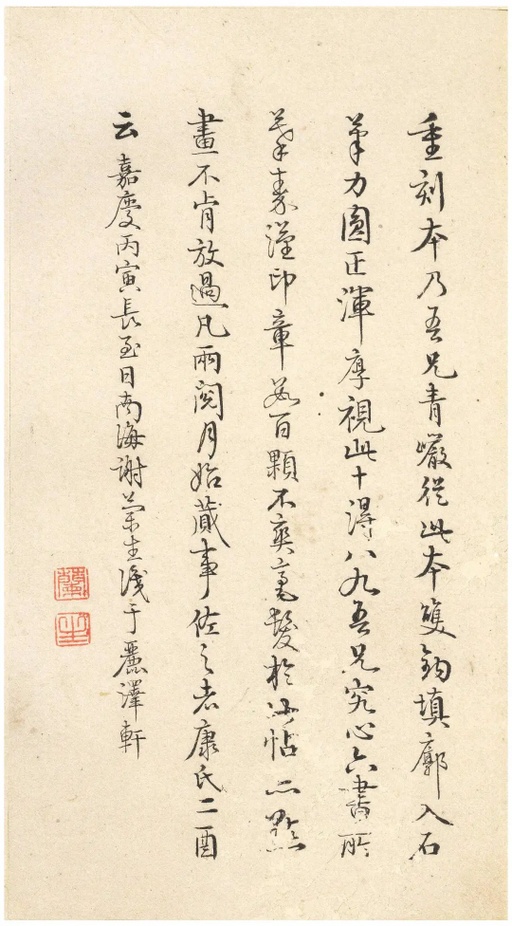 重刻本乃吾兄青巖從此本雙鉤填廓入石
筆力圓正渾厚視此十得八九吾兄究心六書所
摹秦漢印章數百顆不爽毫髮於此帖一點
畫不肯放過凡兩閱月始蕆事佐之者康氏二酉
云嘉慶丙寅長至日南海謝蘭生識于麗澤軒
蘭
生